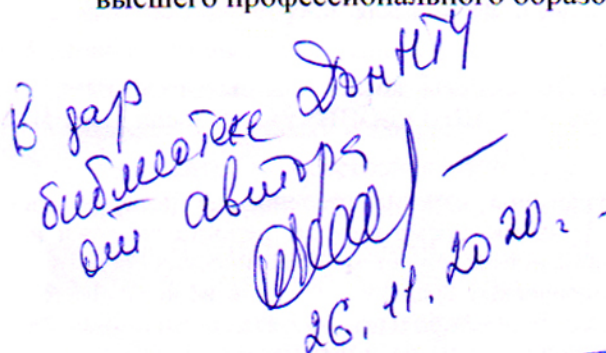 высшего профессионального образо
В дар
библиотеке ДонНТУ
от автора
26.11.2020г.